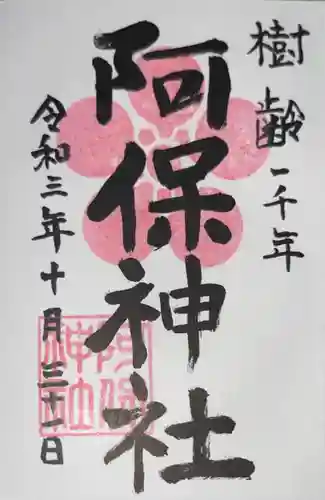 樹齢一千年
阿保神社
令和三年十月三十一日
阿保
神社